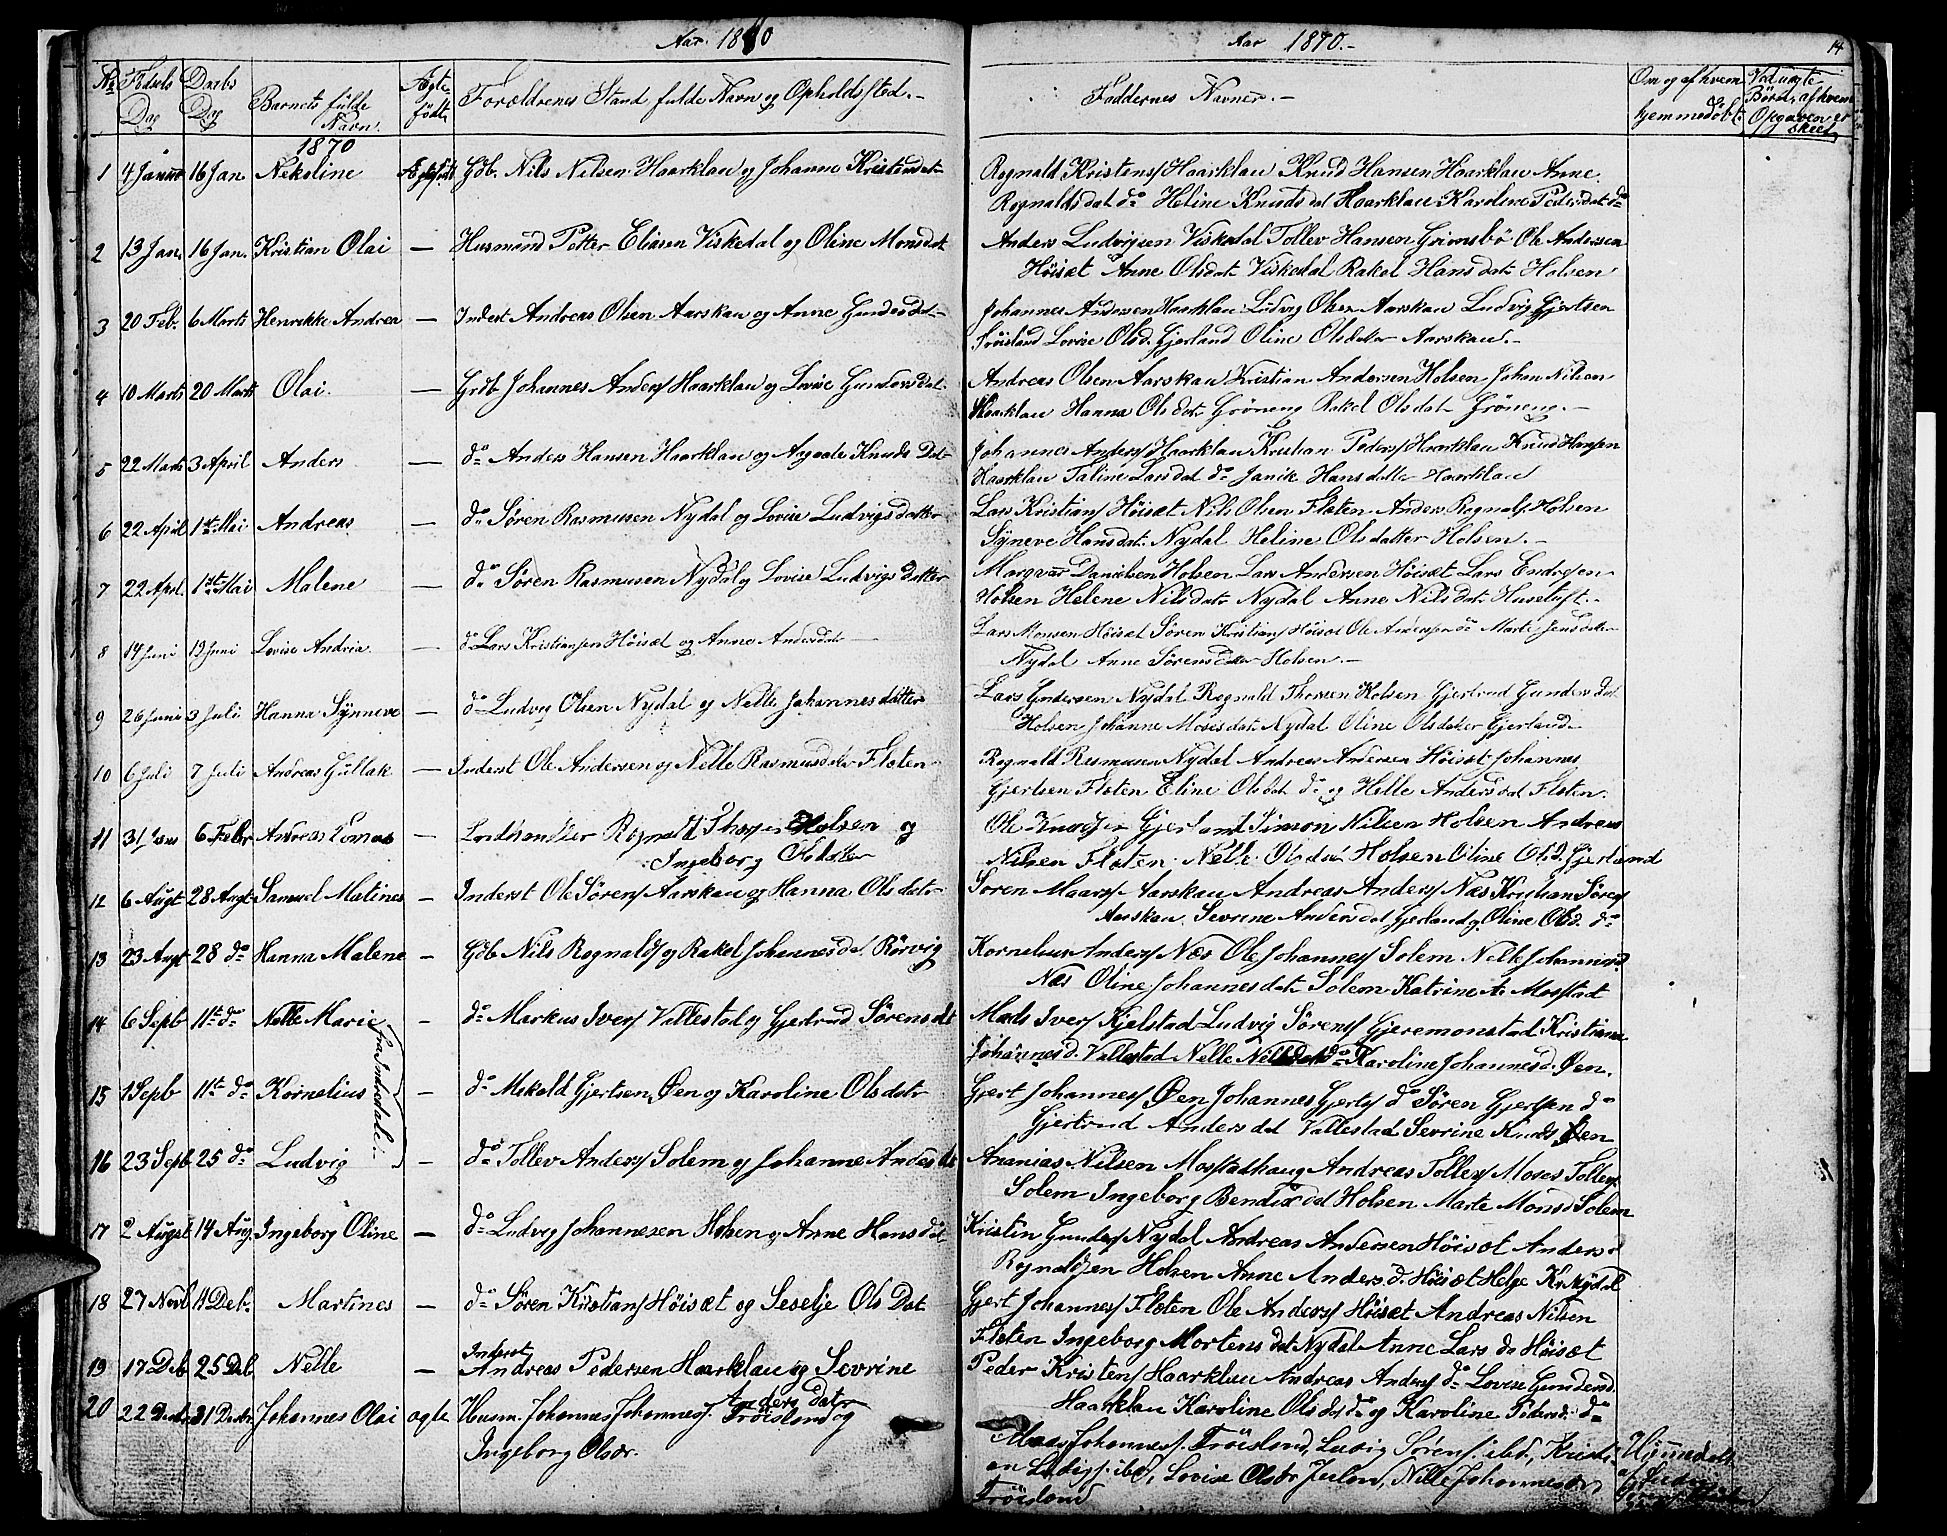 Aar 1870
Aar 1870.-
14
No Fødsels Dag
Daabs Dag
Barnets fulde Navn.
Ægte-født
Forældrenes Stand fulde Navn og Opholdssted.-
Faddernes Navner.-
Om og af hvem hjemmedøbt.
Ved uægte Børn, af hvem Opgaven er skeet
1870
1 4 Januar 16 Jan Nekoline Ægtefødt Gdb. Nils Nilsen Haarklau og Johanne Kristensdat
Rognald Kristens/ Haarklau Knud Hansen Haarklau Anne
Rognaldsdat do Heline Knudsdat Haarklau Karoline Pedersdat do
2 13 Jan. 16 Jan. Kristian Olai — Husmand Petter Eliasen Viskedal og Oline Monsdat
Anders Ludvigsen Viskedal Tollev Hansen Grimsbø Ole Andersen
Høisæt Anne Olsdat Viskedal Rakel Hansdat Holsen
3 20 Feb. 6 Marts Henrikke Andrea — Inderst Andreas Olsen Aarskau og Anne Gundersdat-
Johannes Andersen Haarklau Ludvig Olsen Aarskau Ludvig Gjertsen
Trøisland Lovise Olsd. Gjerland Oline Olsdatter Aarskau.-
4 10 Marts 20 Marts Olai. — Grdb Johannes Anders/ Haarklau og Lovise Gundersdat
Andreas Olsen Aarskau Kristian Andersen Holsen Johan Nilsen
Haarklau Hanna Olsdat Grøneng Rakel Olsdat Grøneng.-
5 22 Marts 3 April Anders — do Anders Hansen Haarklau og Aagaate Knuds Dat
Johannes Anders/ Haarklau Kristian Peders/ Haarklau Knud Hansen
Haarklau Taline Larsdat do Janik Hansdatter Haarklau
6 22 April 1ste Mai Andreas — do Søren Rasmusen Nydal og Lovise Ludvigsdatter
Lars Kristians/ Høisæt Nils Olsen Flaten Anders Rognals/ Holsen
Synneve Hansdat. Nydal Heline Olsdatter Holsen.-
7 22 Apri. 1ste Mai Malene — do Søren Rasmusen Nydal og Lovise Ludvigs datter
Marqvar Danielsen Holsen Lars Andersen Høisæt Lars Endresen
Holsen Helene Nilsdatr Nydal Anne Nilsdat Husetuft.-
8 14 Juni 19 Juni Lovise Andria — do Lars Kristiansen Høisæt og Anne Andersdat
Lars Monsen Høisæt Søren Kristians/ Høisæt Ole Andersen do Marte Jensdatter
Nydal Anne Sørensdatter Holsen.-
9 26 Juni 3 Juli Hanna Synneve — do Ludvig Olsen Nydal og Nelle Johannesdatter
Lars Gundersen Nydal Rognald Thorsen Holsen Gjertrud Gundersdat
Holsen Johanne Mosesdat Nydal Oline Olsdatter Gjerland
10 6 Juli 7 Juli Andreas Gullak — Inderst Ole Andersen og Nelle Rasmusdatr Flaten
Rognald Rasmusen Nydal Andreas Andersen Høisæt Johannes
Gjertsen Flaten Eline Olsdat do og Helle Andersdat Flaten.
11 31 Jan 6 Febr Andreas Tomas — Landhandler Rognald Thorsen Holsen og
Ingeborg Olsdatter
Ole Knudsen Gjerland Simon Nilsen Holsen Andreas
Nilsen Flaten. Nelle Olsdat Holsen Oline Olsd. Gjerland
12 6 Augt 28 Augt Samuel Matines — Inderst Ole Sørens/ Aarskau og Hanna Olsdat-
Søren Maars/ Aarskau Andreas Anders/ Næs Kristian Sørens/
Aarskau Sevrine Andersdat Gjerland og Oline Olsd. do
13 23 Augt 28 do Hanna Malene — Gdb Nils Rognalds/ og Rakel Johannesdat. Rørvig
Kornelius Anders/ Næs Ole Johannes/ Solem Nelle Johannesd
Næs Oline Johannesdat Solem Katrine A. Mosstad
14 6 Septb 11te do Nelle Marie — do Markus Ivers/ Vallestad og Gjertrud Sørensdt
Mads Ivers/ Kjelstad Ludvig Sørens/ Gjeremonstad Kristiane
Johannesd. Vallestad Nelle Nilsdat do Karoline Johannesd. Øen.
15 1 Sepb 11te do Kornelius — do Mikald Gjertsen Øen og Karoline Olsdatr
Gjert Johannes/ Øen Johannes Gjerts/ do Søren Gjertsen do
Gjertrud Andersdat Vallestad Sevrine Knuds Øen
16 23 Sepb 25 do Ludvig — do Tollev Anders/ Solem og Johanne Andersdt
Ananias Nilsen Mosstadhaug Andreas Tollevs/ Moses Tollevs/
Solem Ingeborg Bendixdat Holsen Marte Monsd Solem
17 2 August 14 Aug. Ingeborg Oline — do Ludvig Johannesen Holsen og Anne Hansdat
Kristen Gunders/ Nydal Andreas Andersen Høisæt Anders
Rognaldsen Holsen Anne Anders.d. Høisæt Helge Kr. Nydal
18 27 Novb 11 Deb. Martines — do Søren Kristians/ Høisæt og Seselje Ols Dat
Gjert Johannes/ Flaten Ole Anders/ Høisæt Andreas Nilsen
Flaten Ingeborg Mortensdat Nydal Anne Lars do Høisæt
19 17 Deb 25 Deb Nelle — Inderst
Andreas Pedersen Haarklau og Sevrine
Andersdatr
Peder Kristens/ Haarklau Andreas Anders/ do Lovise Gundersd.
Haarklau Karoline Olsdat do og Karoline Pedersd. do
20 22 Decbr 31 Decbr. Johannes Olai ægte Husm. Johannes Johannes/. Trøisland og
Ingeborg Olsdr.
Johannes/. Trøisland, Ludvig Sørens/ ibd, Kristi-
an Ludvigs/. ibd, Lovise Olsdr Nelle Johannesdr
Trøisland
Hjemmedøbt
af